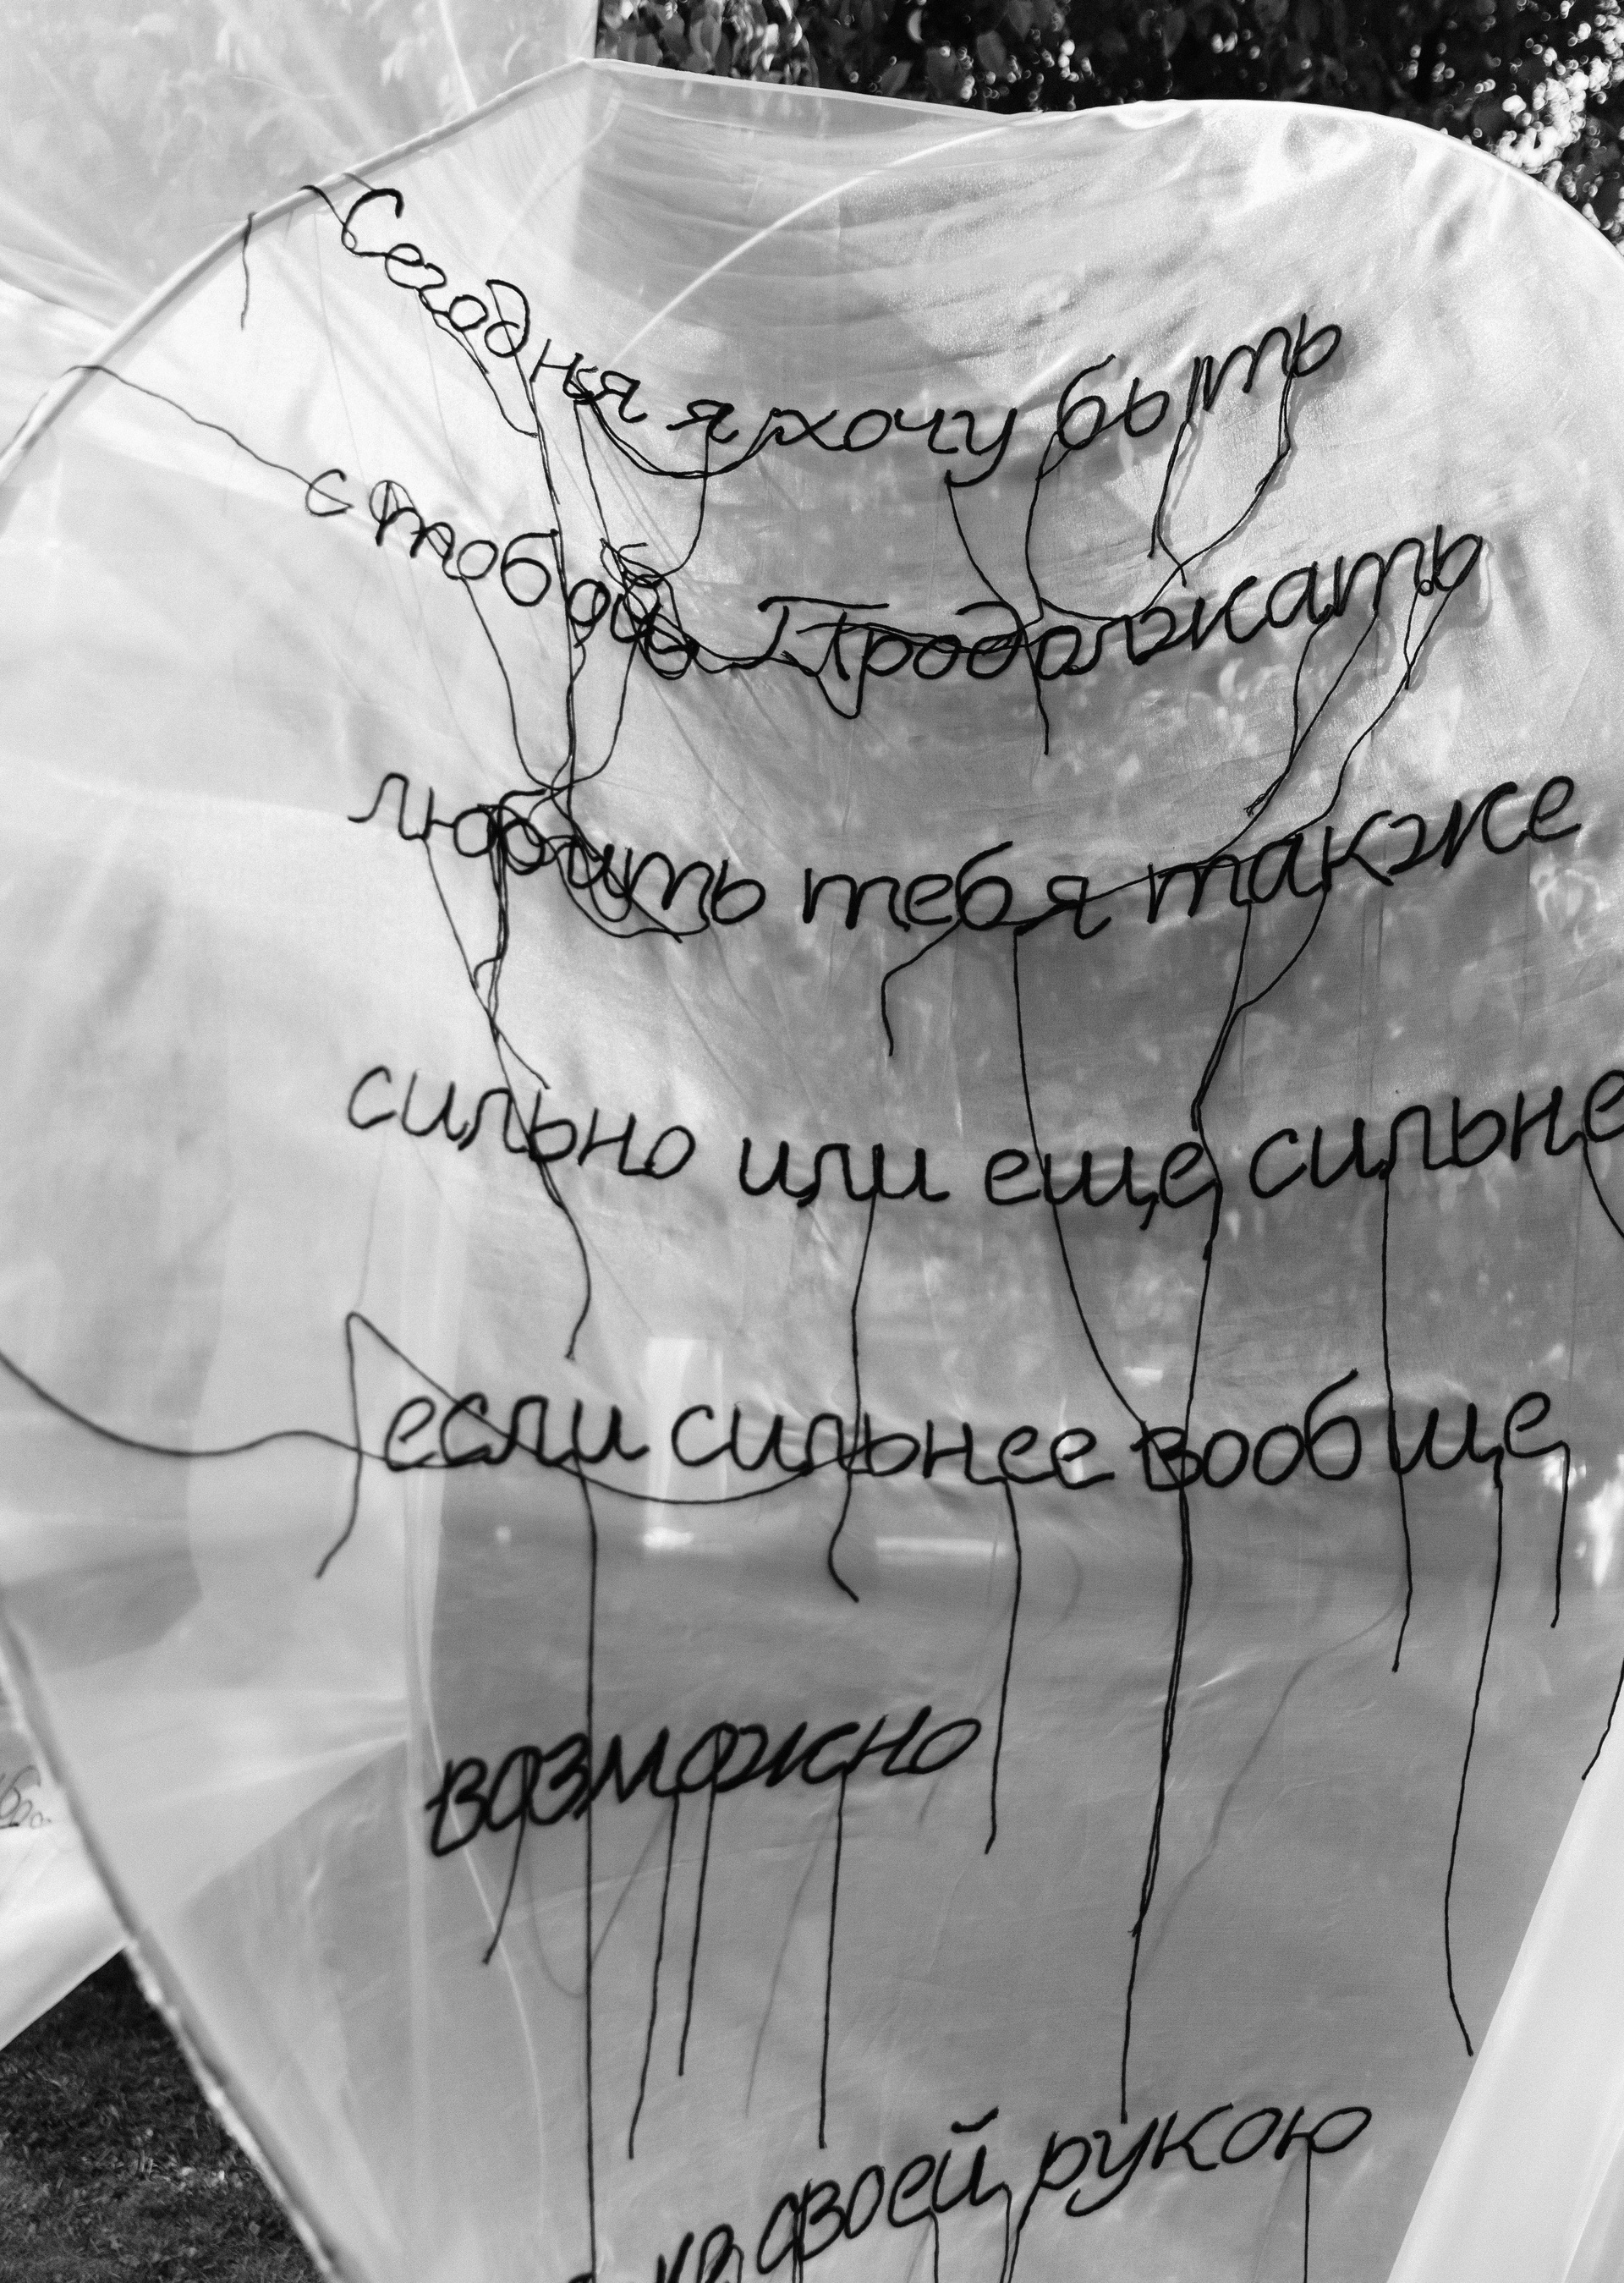 Сегодня я хочу быть
с тобой Продолжать
любить тебя также
сильно или еще сильне
если сильнее вообще
возможно
своей рукою